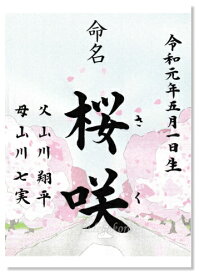 令和元年五月一日生
命名
桜咲
さく
父 山川 翔平
母 山川 七実